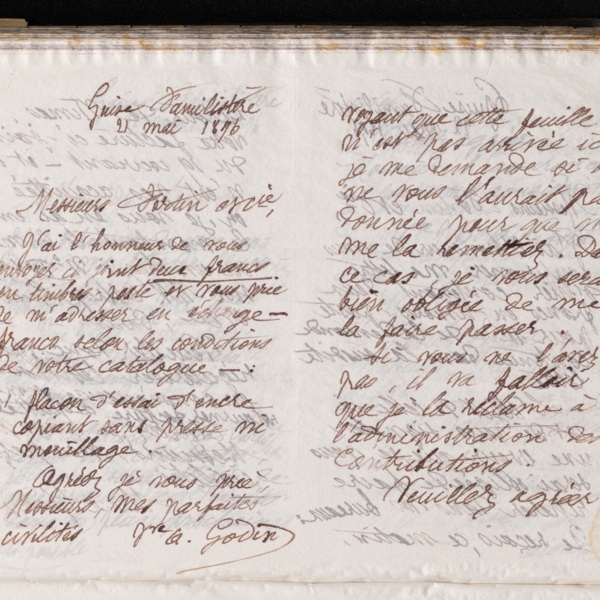 Guise Familistère
21 mai 1896
Messieurs Fortin et Cie,
J'ai l'honneur de vous
envoyer ci joint deux francs
en timbres poste et vous prie
de m'adresser en échange
franco selon les conditions
de votre catalogue — :
1 flacon d'essai d'encre
copiant sans presse ni
mouillage.
Agréez je vous prie
Messieurs, mes parfaites
civilités Vve A. Godin
voyant que cette feuille
n'est pas arrivée ic
je me demande si o
ne vous l'aurait pa
donnée pour que
me la remettiez. Da
ce cas je vous sera
bien obligée de me
la faire passer.
Si vous ne l'avez
pas, il va falloir
que je la réclame à
l'administration des
Contributions.
Veuillez agréer